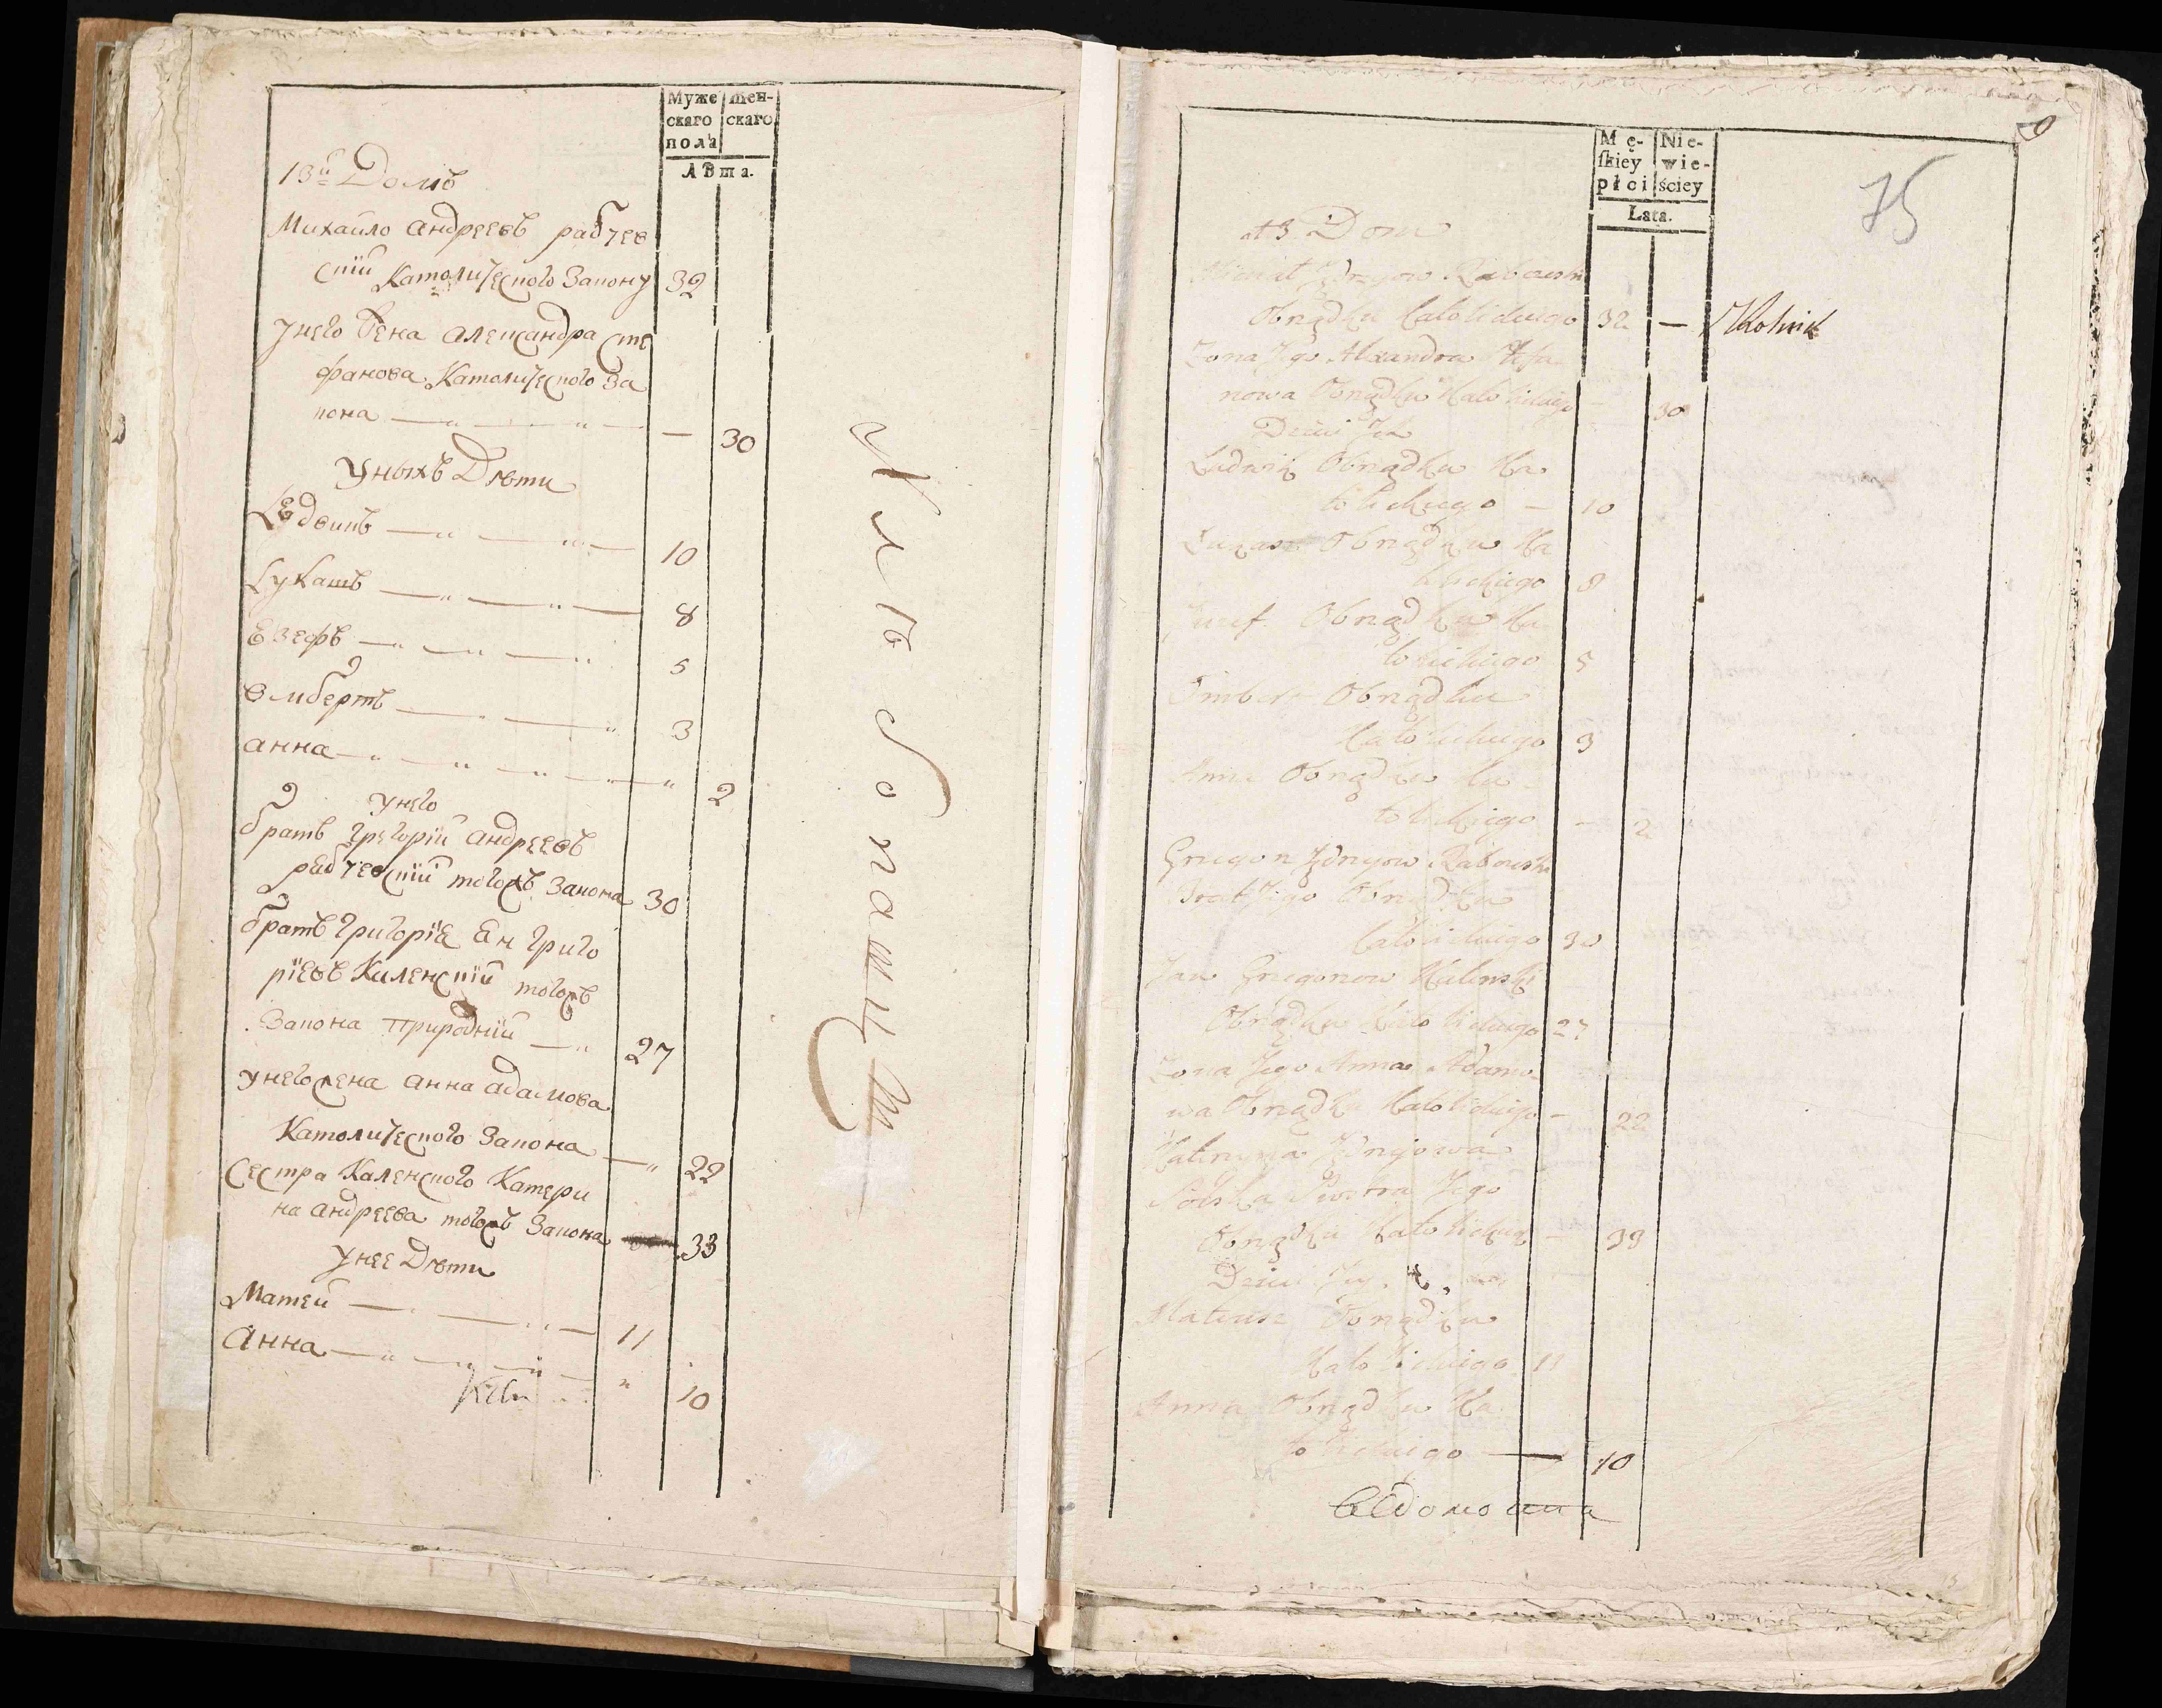 Муже
скаго
пола
Жен-
скаго
Лѣта.
13й Домъ
Михайло андреевъ рабчев
скїй Католического Закону 32
Унего жена александра Сте
фанова Католического За
кона — 30
Уныхъ Дѣти
Ледвикъ — 10
Лукашъ — 8
Езефъ — 5
Омбертъ — 3
анна — 2
унего
братъ григорїй андреевъ
рабчевскїй тогожъ Закона 30
братъ григорїя Ян григо
рїевъ Каленскїй тогожъ
Закона природнїй — 27
унегожена анна адамова
Католического Закона — 22
Сестра Каленского Катери
на андреева тогожъ Закона 33
Унее Дѣти
Матей — 11
Анна — 10
Хлѣбопашцы
Mę-
skiey
płci
Nie-
wie-
ściey
Lata.
75
Dom
Jędrzeiow Rabcewski
Obrządku Katolickiego 32 — Rolnik
Zona Jego Alexandra Stefa
nowa Obrządku Katolickiego — 30
Dzieci Ich
Ludwik Obrządku Ka
tolickiego — 10
Łukasz Obrządku Ka
tolickiego 8
Jozef Obrządku Ka
tolickiego 5
Ombert Obrządku
Katolickiego 3
Anna Obrządku Ka
tolickiego — 2
Grzegorz Jędrzeiow Rabcewski
Brat Jego Obrządku
Katolickiego 30
Jan Grzegorzow Kalenski
Obrządku Katolickiego 27
Zona Jego Anna Adamo
wa Obrządku Katolickiego — 22
Katarzyna Jędrzejowa
Siostra Jego
Obrządku Katolickiego — 33
Dzieci Jey
Mateusz Obrządku
Katolickiego 11
Anna Obrządku Ka
tolickiego — 10